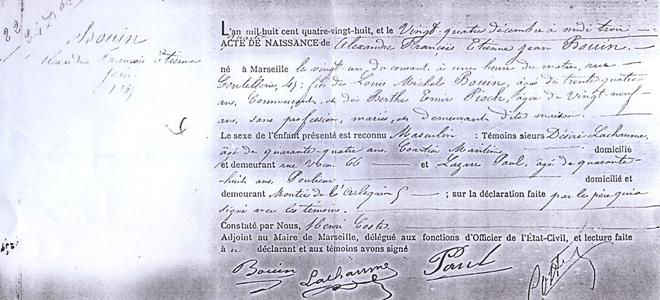 Bouin
Alexandre François Étienne
Jean
L'an mil huit cent quatre-vingt-huit, et le Vingt-quatre décembre à midi trois
ACTE DE NAISSANCE de Alexandre François Etienne Jean Bouin.
né à Marseille le vingt un du courant, à une heure du matin, rue
fils de Louis Michel Bouin, âgé de trente quatre
ans, Commerçant, et de Berthe Emir Rioch, âgée de vingt neuf
ans, sans profession, mariés, et demeurant dite maison.
Le sexe de l'enfant présenté est reconnu Masculin : Témoins sieurs Désiré Lachaume,
âgé de quarante-quatre ans, Courtier Maritime domicilié
et demeurant rue 66 et Lazare Paul, âgé de quarante-
huit ans, domicilié et
demeurant Montée de l'Arlequin 5 ; sur la déclaration faite par le père qui a
signé avec les témoins.
Constaté par Nous, Henri Coste
Adjoint au Maire de Marseille, délégué aux fonctions d'Officier de l'État-Civil, et lecture faite
à déclarant et aux témoins avons signé
Bouin Lachaume Paul Coste